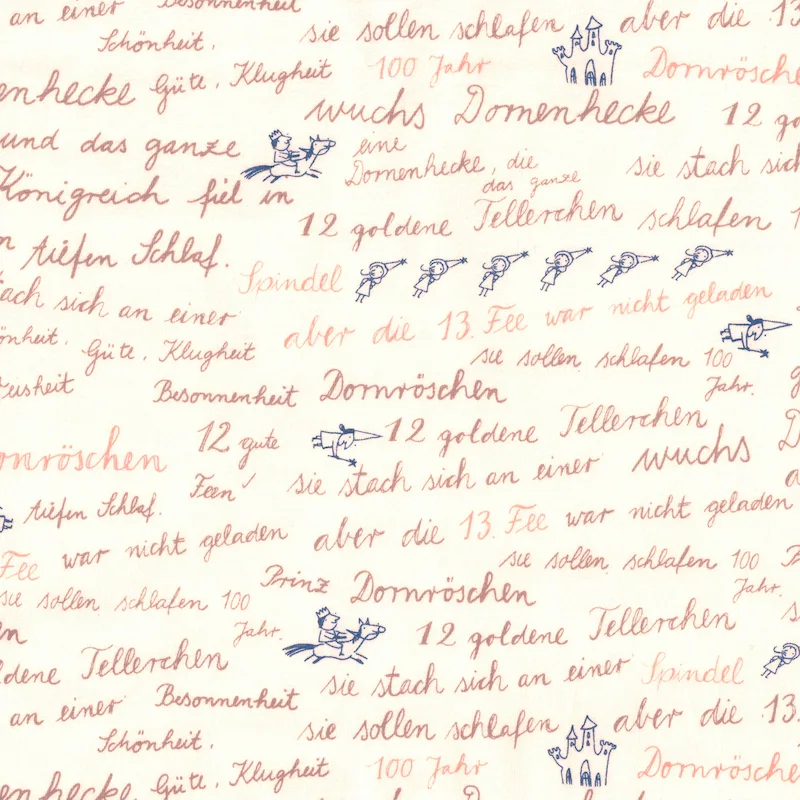 an einer Besonnenheit
sie sollen schlafen aber die 13
Schönheit.
enhecke Güte. Klugheit 100 Jahr Dornrösche
wuchs Dornenhecke 12 go
und das ganze eine
Dornenhecke, die sie stach sich
das ganze
Königreich fiel in
12 goldene Tellerchen schlafen
n tiefen Schlaf.
Spindel
tach sich an einer
aber die 13. Fee war nicht geladen
önheit. Güte. Klugheit
sie sollen schlafen 100
Jahr.
eisheit Besonnenheit Dornröschen
12 gute 12 goldene Tellerchen
ornröschen wuchs
Feen sie stach sich an einer
tiefen Schlaf.
aber die 13. Fee war nicht geladen
Fee war nicht geladen
sie sollen schlafen 100
Jahr.
Prinz Dornröschen
sie sollen schlafen 100
Jahr.
12 goldene Tellerchen
ldene Tellerchen
sie stach sich an einer Spindel
an einer Besonnenheit
sie sollen schlafen aber die 13.
Schönheit.
enhecke Güte. Klugheit 100 Jahr Dornrösche